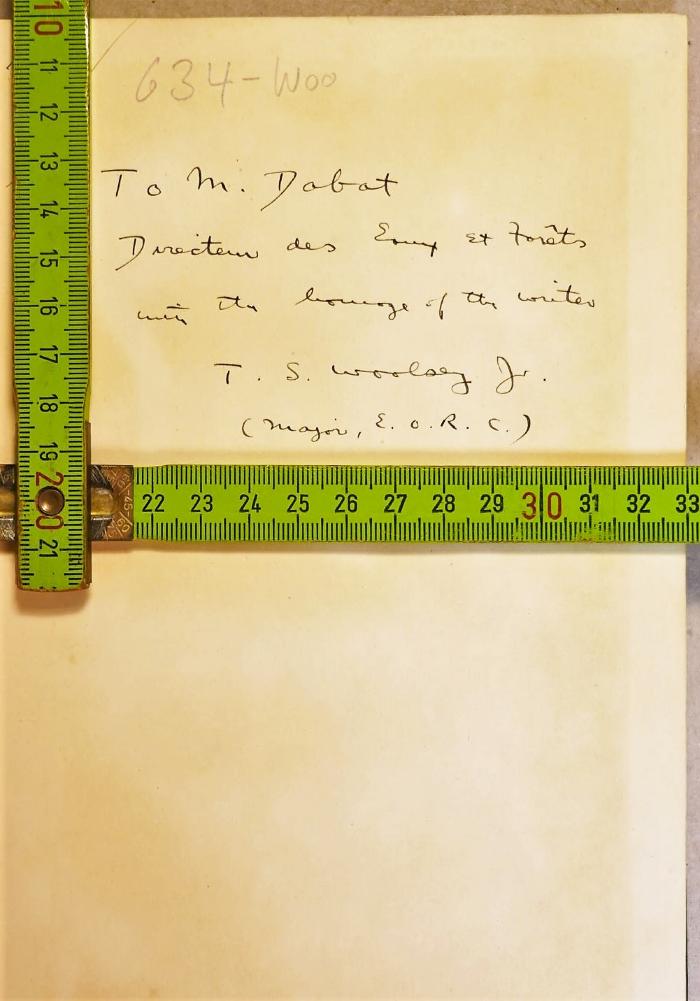 634-Woo
To M. Dabat
Directeur des Eaux et Forêts
with the homage of the writer
T. S. Woolsey Jr.
(Major, E. O. R. C.)
10 11 12 13 14 15 16 17 18 19 20 21
22 23 24 25 26 27 28 29 30 31 32 33